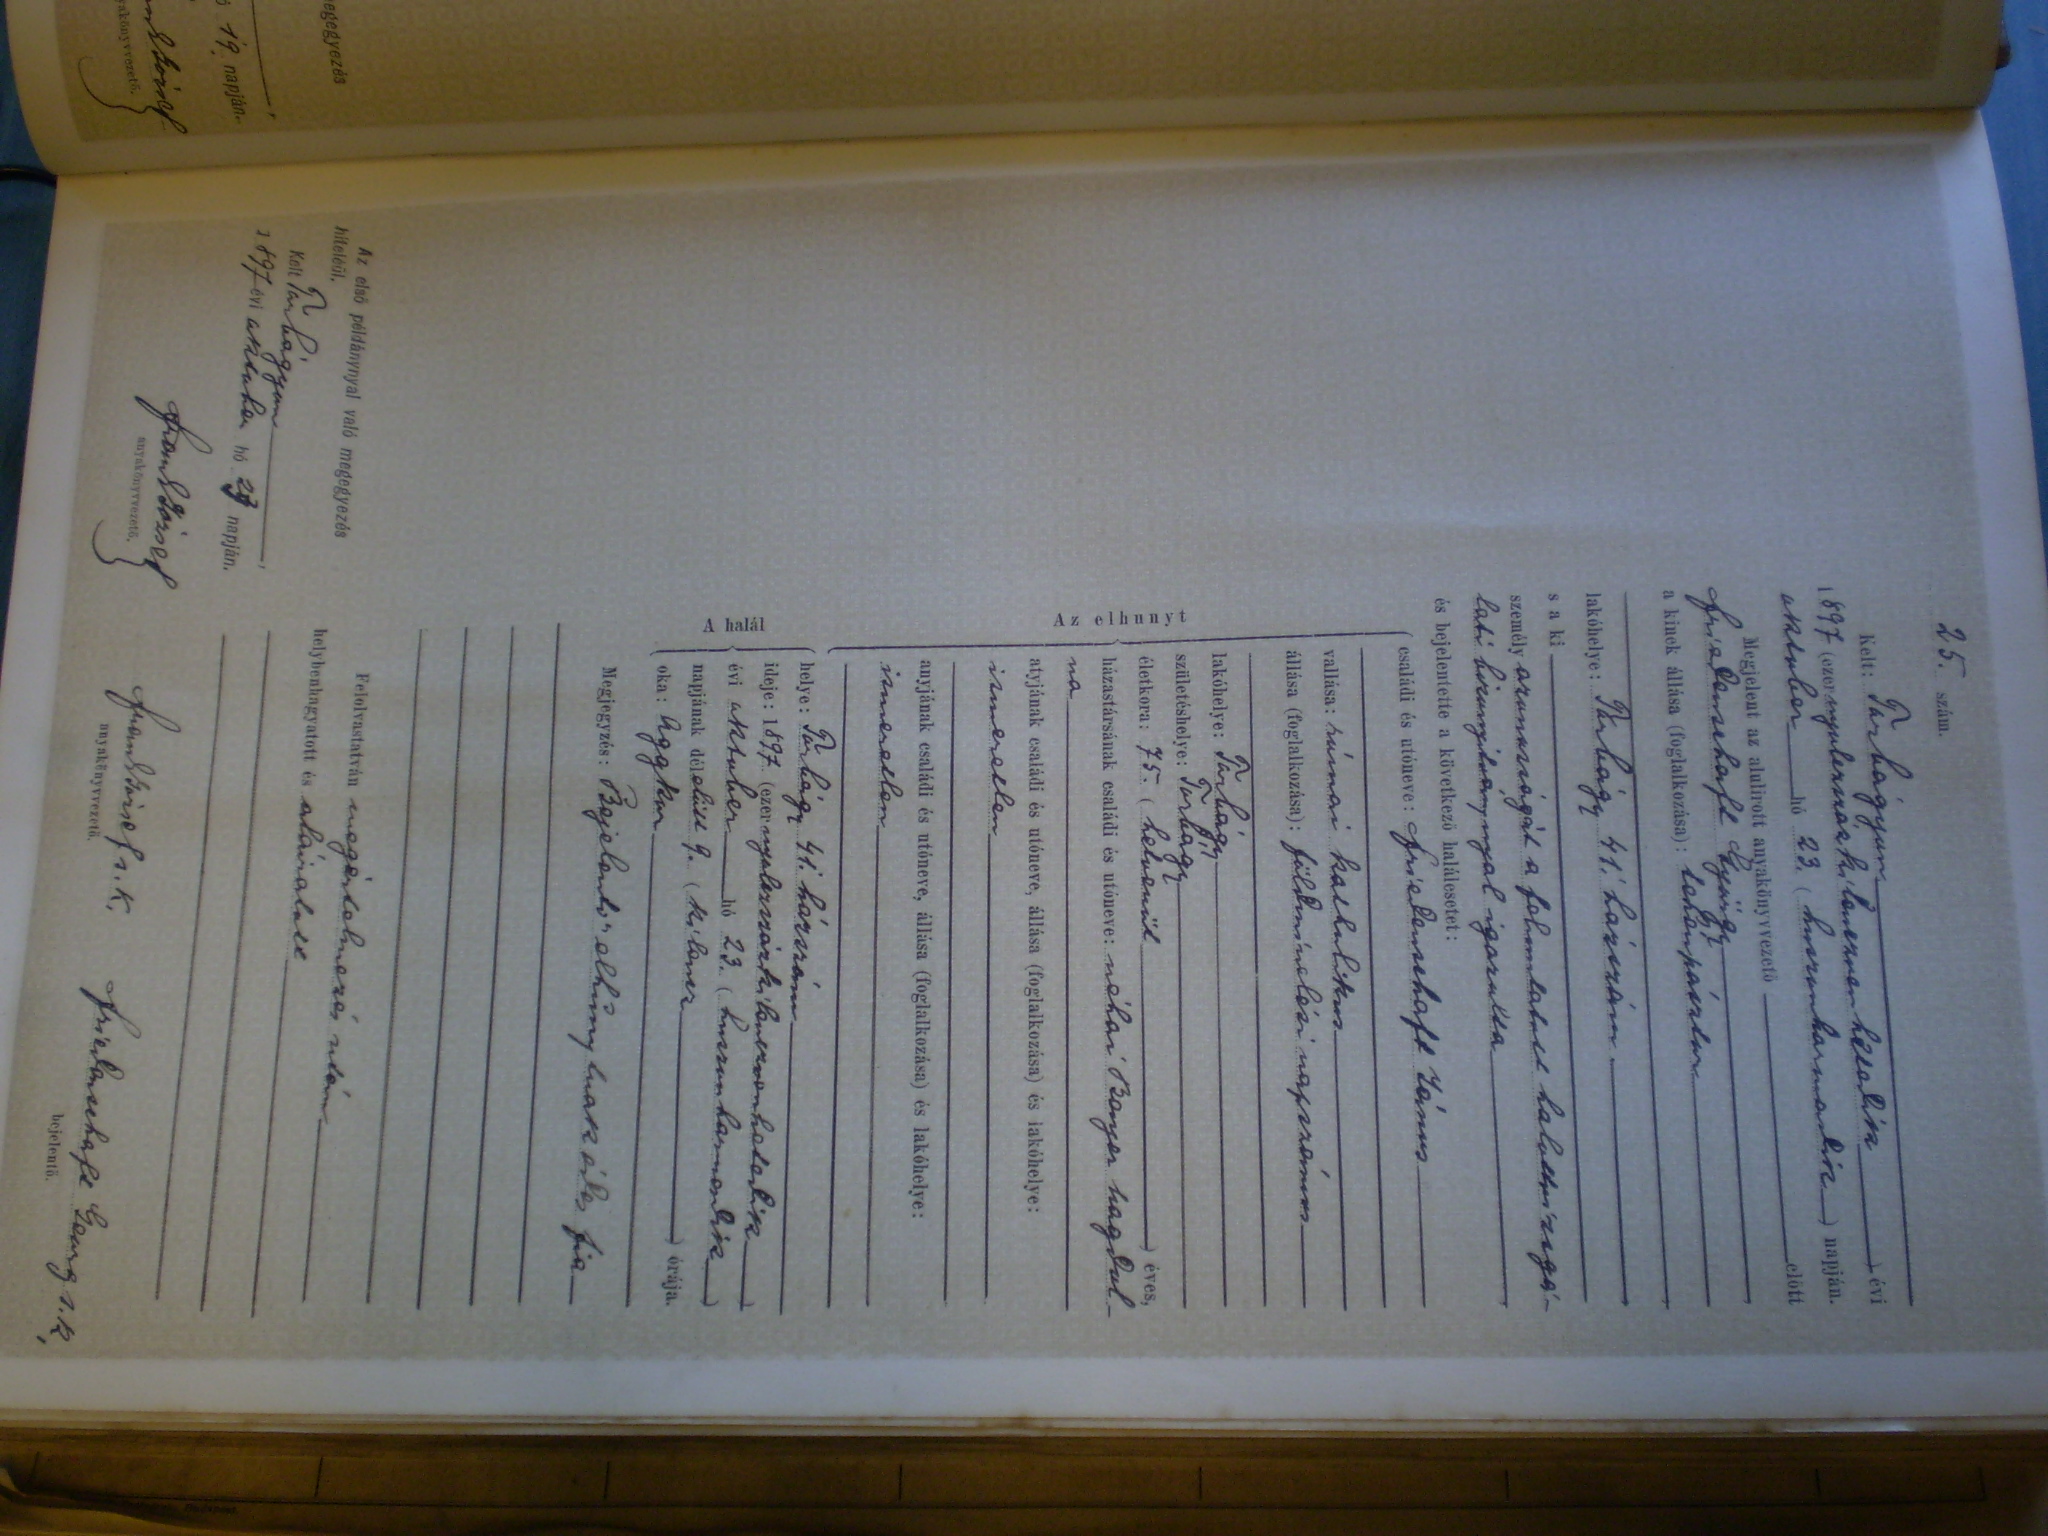 25. szám.
Kelt: Törbágyon
1897 (ezernyolcszázkilenczvenhetedik) évi
október hó 23. (huszonharmadik) napján.
Megjelent az alulirott anyakönyvvezető előtt
Friedenschaft György
a kinek állása (foglalkozása):
lakóhelye: Törbágy 41. házszám
s a ki
személyazonosságát a felmutatott halottvizsgá-
lati bizonyitvánnyal igazolta
és bejelentette a következő halálesetet:
Az elhunyt
családi és utóneve: Friedenschaft János
vallása: római katholikus
állása (foglalkozása): földmivelési napszámos
lakóhelye: Törbágy
születéshelye: Törbágy
életkora: 75. (hetvenöt) éves,
házastársának családi és utóneve: néhai Boyer Magdol-
na
atyjának családi és utóneve, állása (foglalkozása) és lakóhelye:
ismeretlen
anyjának családi és utóneve, állása (foglalkozása) és lakóhelye:
ismeretlen
A halál
helye: Törbágy 41. házszám
ideje: 1897. (ezernyolcszázkilenczvenhetedik)
évi október hó 23. (huszonharmadik)
napjának délelőtt 9. (kilencz) órája.
oka: Aggkor
Megjegyzés: Bejelentő elhúnynak édes fia
Felolvastatván megértelmezés után
helybenhagyatott és aláiratott
s. k.
anyakönyvvezető.
Friedenschaft Georg s. k.
bejelentő.
Az első példánynyal való megegyezés
hiteléül.
Kelt Törbágyon
1897 évi október hó 23 napján.
anyakönyvvezető.
megegyezés
19. napján.
anyakönyvvezető.